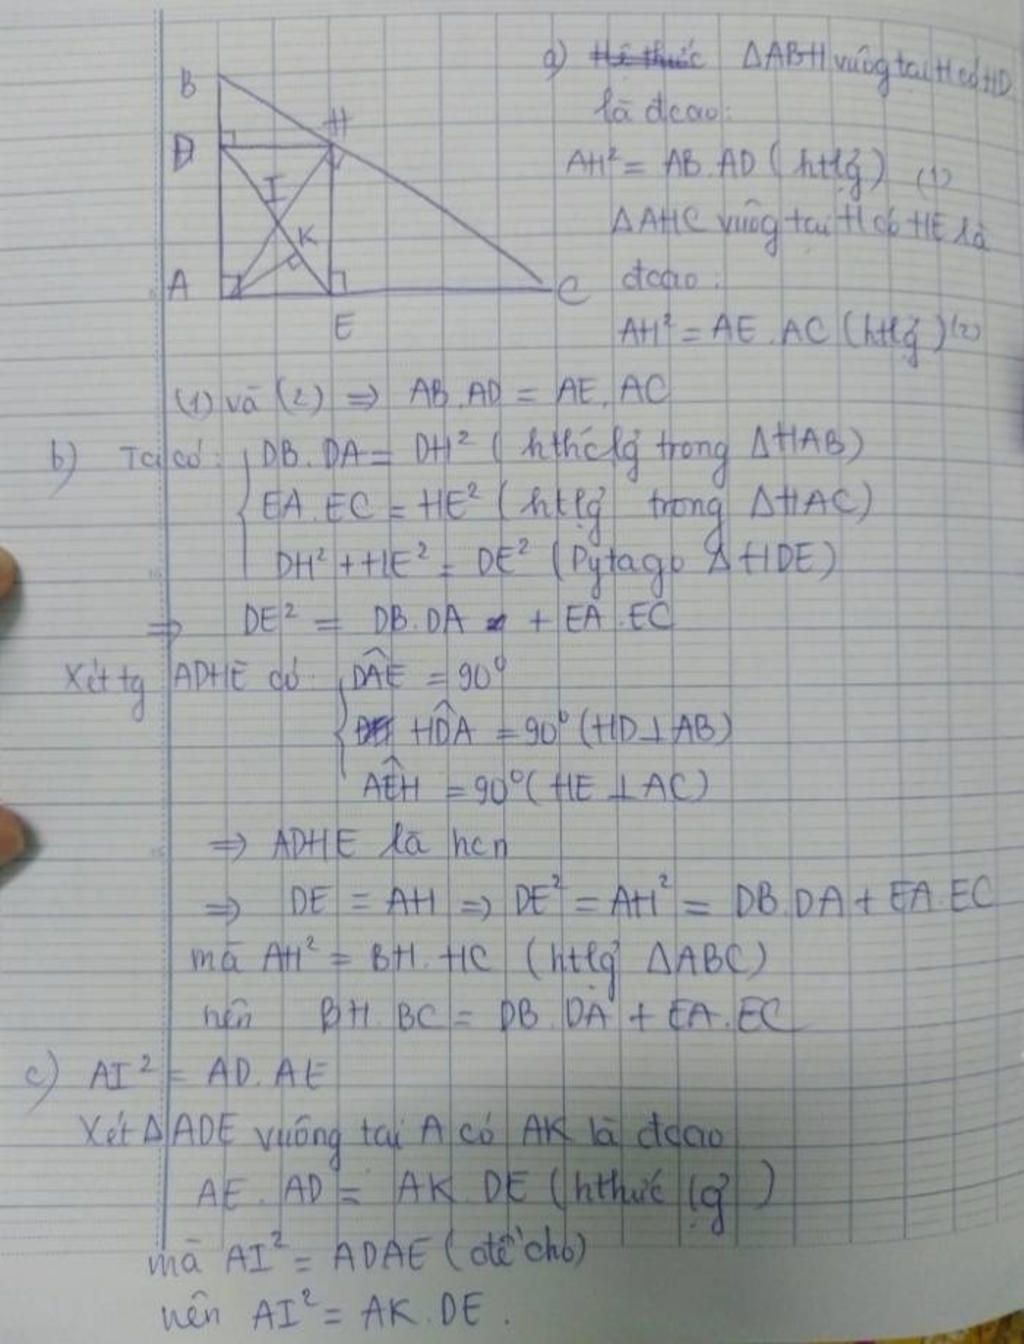 a) Hê thức ΔABH vuông tại H có HD
là đcao:
AH² = AB.AD (htlg) (1)
ΔAHC vuông tại H có HE là
đcao:
AH² = AE.AC (htlg) (2)
B
D
H
I
K
A
C
E
(1) và (2) ⇒ AB.AD = AE.AC
b) Ta có: DB.DA = DH² (hthclg trong ΔHAB)
EA.EC = HE² (htlg trong ΔHAC)
DH² + HE² = DE² (Pytago ΔHDE)
⇒ DE² = DB.DA + EA.EC
Xét tg ADHE có: D̂AE = 90⁰
HD̂A = 90⁰ (HD⊥AB)
AÊH = 90⁰ (HE ⊥ AC)
⇒ ADHE là hcn
⇒ DE = AH ⇒ DE² = AH² = DB.DA + EA.EC
mà AH² = BH.HC (htlg ΔABC)
nên BH.BC = DB.DA + EA.EC
c) AI² = AD.AE
Xét ΔADE vuông tại A có AK là đcao
AE.AD = AK.DE (hthức lg)
mà AI² = ADAE (đề cho)
nên AI² = AK.DE.